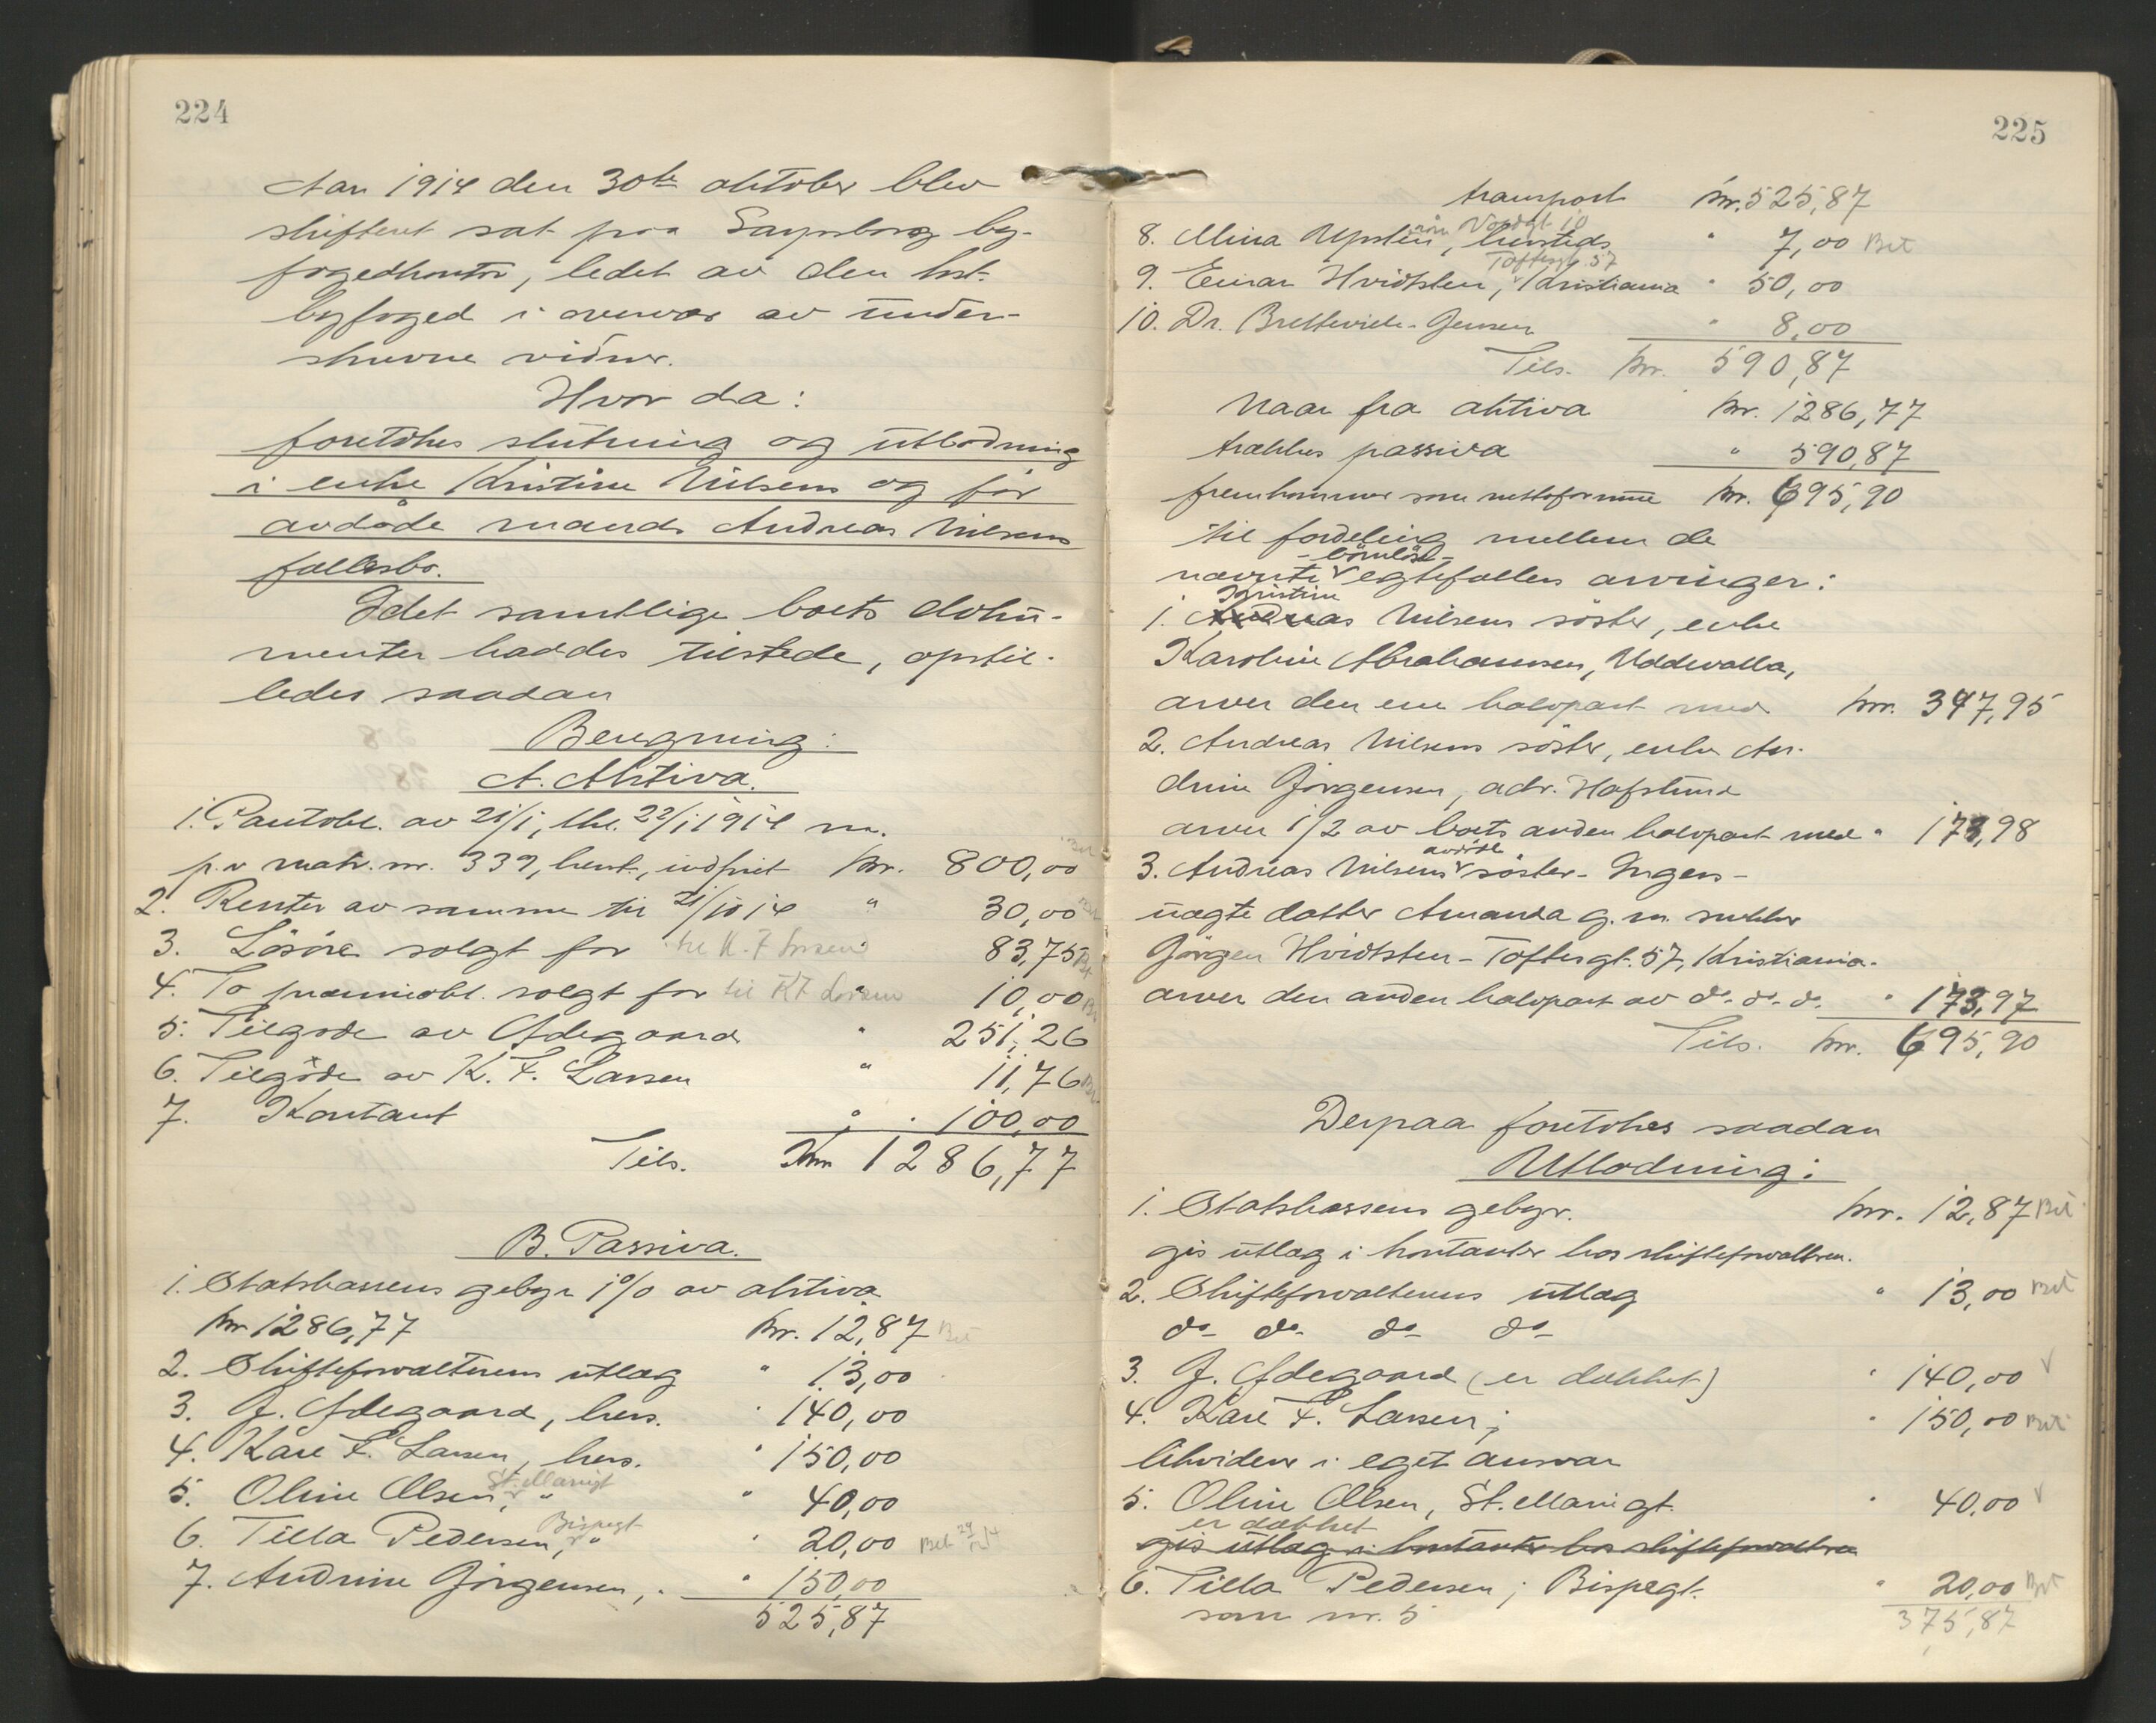 224
Aar 1914 den 30te oktober blev
skifteret sat paa Sarpsborg by-
fogedkontor, ledet av den kst.
byfoged i overvær av under-
skrevne vidner.
Hvor da:
foretokes slutning og utlodning
i enke Kristine Nilsens og før
avdøde mands Andreas Nilsens
fællesbo.
Idet samtlige boets doku-
menter haddes tilstede, opstil-
ledes saadan
Beregning:
A. Aktiva.
1. Pantobl. av 21/1, thl. 22/1 1914 m.
p. i matr. nr. 339, hert, indfriet kr. 800,00
2. Renter av samme til 21/10 14 " 30,00
3. Løsøre solgt for til K. F. Larsen 83,75 Bet
4. To præmieobl. solgt for til K F Larsen 10,00 Bet
5. Tilgode av Ødegaard " 251,26
6. Tilgode av K. F. Larsen " 11,76 Bet
7. Kontant " 100,00
Tils. Kr 1286,77
B. Passiva.
1. Statskassens gebyr 1% av aktiva
kr 1286,77 kr. 12,87 Bet
2. Skifteforvalterens utlæg " 13,00
3. J. Ødegaard, hers. " 140,00
4. Kåre F. Larsen, hers. " 150,00
5. Oline Olsen, " St. Marigt " 40,00
6. Tilla Pedersen, " Bispegt " 20,00 Bet 29/12 14
7. Andrine Jørgensen, " " 150,00
525,87
225
transport kr. 525,87
8. Mina Opsten, hersteds " 7,00 Bet
Toftesgt. 57
9. Einar Hvidtsten, Kristiania " 50,00
10. Dr. Brettevick-Jensen " 8,00
Tils. kr. 590,87
Naar fra aktiva kr. 1286,77
trækkes passiva " 590,87
fremkommer som nettoformue kr. 695,90
til fordeling mellem de
-barnløse-
nævnte egtefællers arvinger:
Kristine
1. Andreas Nilsens søster, enke
Karoline Abrahamsen, Uddevalla,
arver den ene halvpart med kr. 347,95
2. Andreas Nilsens søster, enke An-
drine Jørgensen, adr. Hafslund
arver 1/2 av boets anden halvpart med " 173,98
avdøde
3. Andreas Nilsens søster - Ingers -
uægte datter Amanda g. m. snekker
Jørgen Hvidtsten - Toftesgt. 57, Kristiania.
arver den anden halvpart av do. do. do. " 173,97
Tils. kr. 695,90
Derpaa foretokes saadan
Utlodning:
1. Statskassens gebyr. kr. 12,87 Bet
gis utlæg i kontanter hos skifteforvalteren.
2. Skifteforvalterens utlæg " 13,00 Bet
do do do do
3. J. Ødegaard (er dækket) " 140,00 √
4. Kåre F. Larsen; " 150,00 Bet
likviderer i eget ansvar
5. Oline Olsen, St. Marigt. " 40,00 √
er dækket
gis utlæg i kontanter hos skifteforvalteren
6. Tilla Pedersen; Bispegt. " 20,00 Bet
som nr. 5
375,87